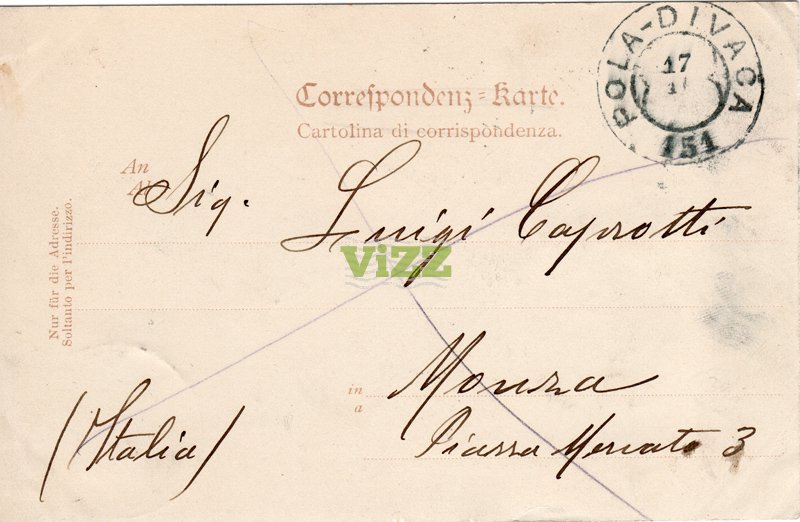 POLA-DIVAČA
17
151
Correspondenz-Karte.
Cartolina di corrispondenza.
An
Sig. Luigi Caprotti
ViZZ
Nur für die Adresse.
Soltanto per l'indirizzo.
in
a
Monza
(Italia)
Piazza Mercato 3